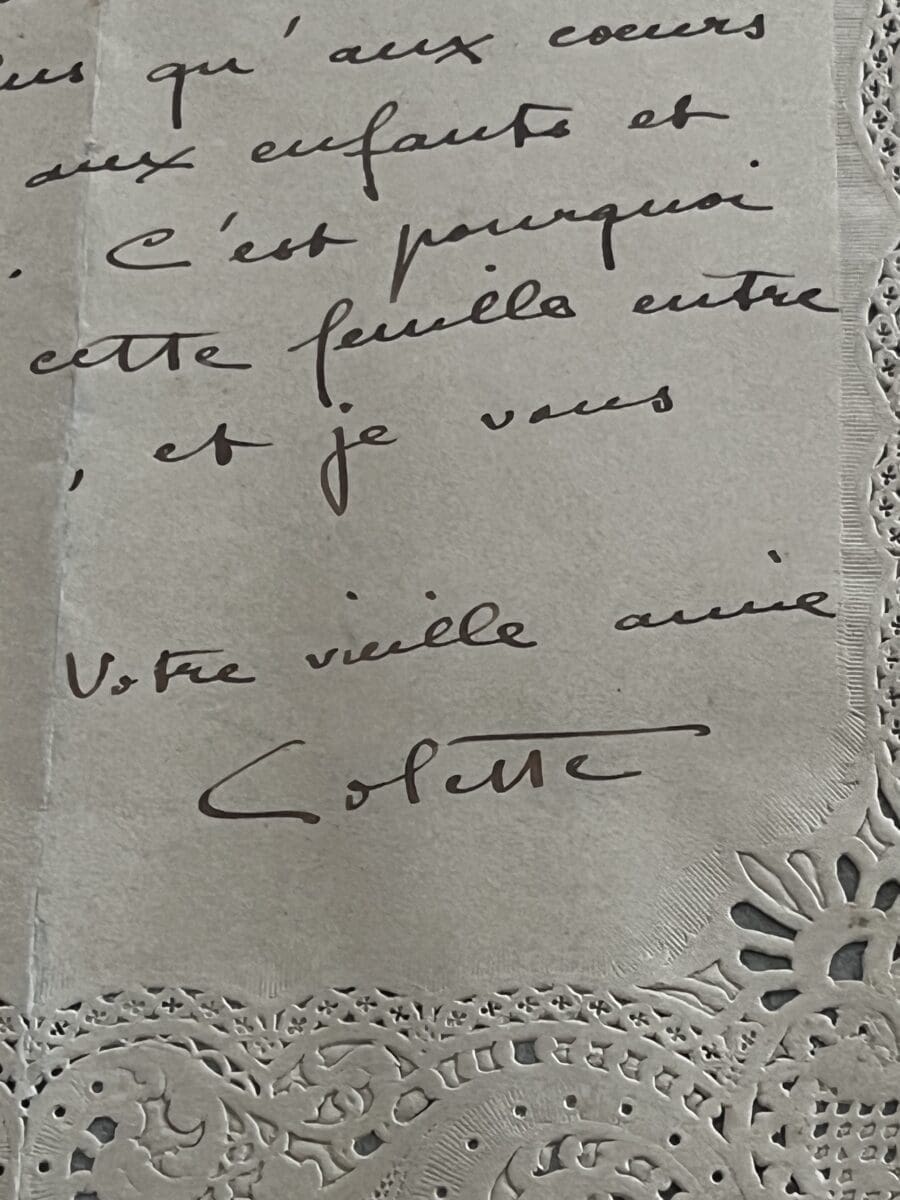 qu'aux cœurs
aux enfants et
. C'est pourquoi
cette feuille entre
, et je vous
Votre vieille amie
Colette